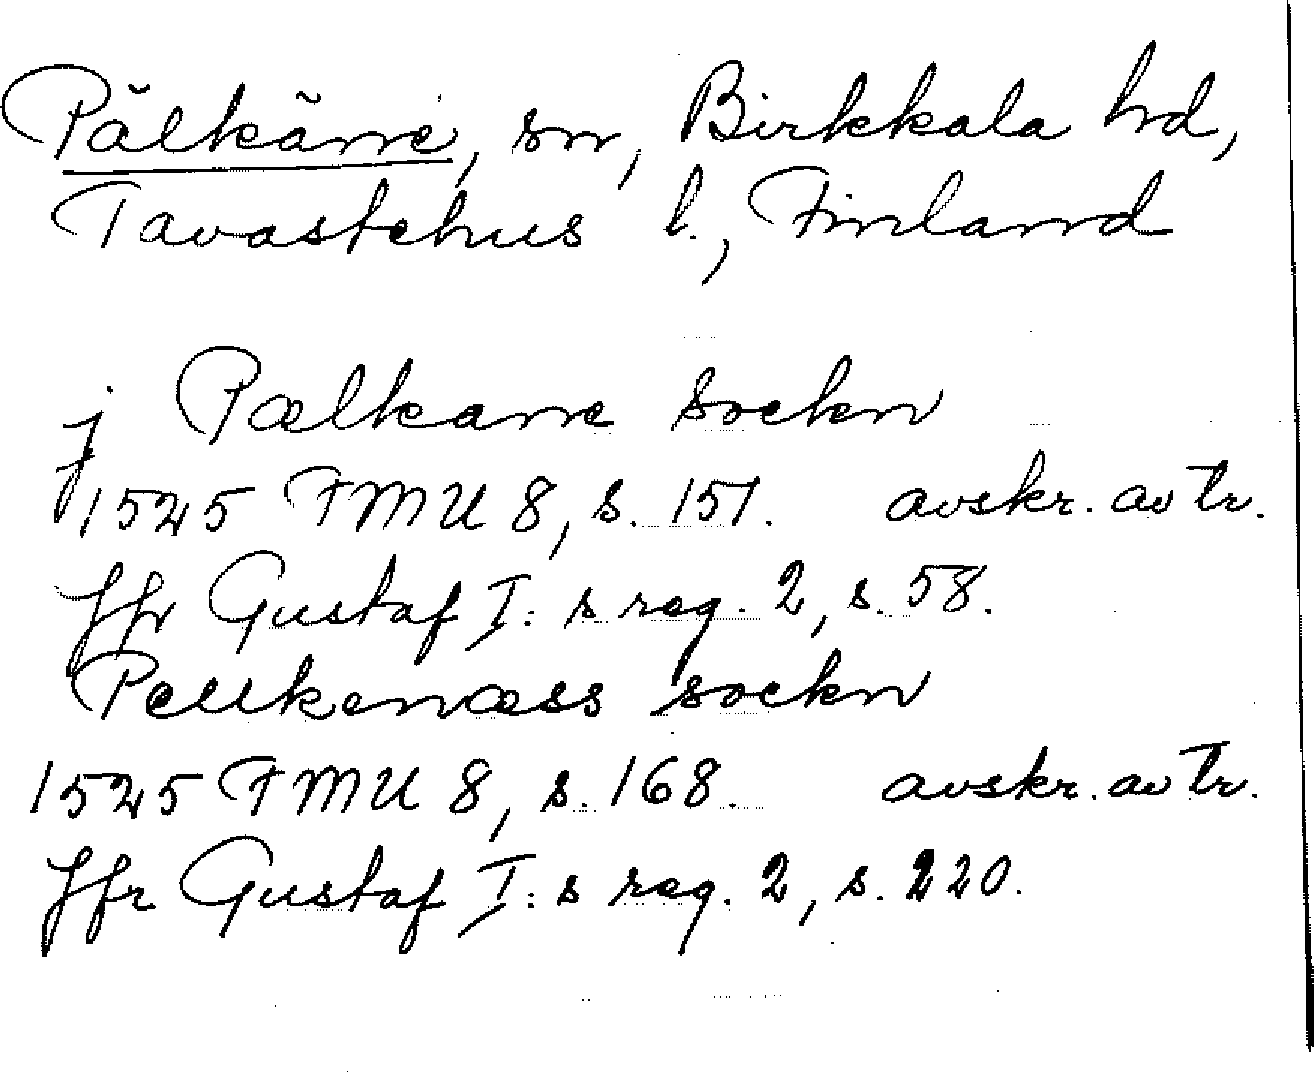 Pälkäne, sn, Birkkala hd,
Tavastehus l., Finland
j Pælkane sockn
1525 FMU 8, s. 151. avskr. av tr.
Jfr Gustaf I:s reg. 2, s. 58.
Pellkenæss sockn
1525 FMU 8, s. 168. avskr. av tr.
Jfr Gustaf I:s reg. 2, s. 220.